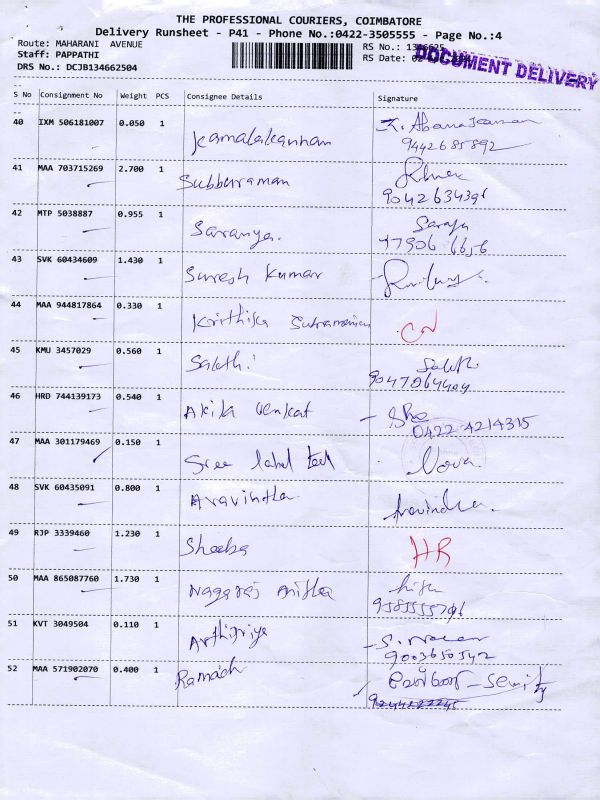 THE PROFESSIONAL COURIERS, COIMBATORE
Delivery Runsheet - P41 - Phone No.:0422-3505555 - Page No.:4
Route: MAHARANI AVENUE RS No.:
Staff: PAPPATHI RS Date:
DRS No.: DCJB134662504
DOCUMENT DELIVERY
S No Consignment No Weight PCS Consignee Details Signature
40 IXM 506181007 0.050 1 Kamalakannan
9442685892
41 MAA 703715269 2.700 1 Subburaman
9042634396
42 MTP 5038887 0.955 1 Saranya.
43 SVK 60434609 1.430 1 Suresh Kumar
44 MAA 944817864 0.330 1 Krithika
45 KMU 3457029 0.560 1 Sakthi
46 HRD 744139173 0.540 1 Akila Venkat
0422 4214315
47 MAA 301179469 0.150 1 Sree label
48 SVK 60435091 0.800 1 Aravindha
49 RJP 3339460 1.230 1 Sheeba HR
50 MAA 865087760 1.730 1 Nagaraj
51 KVT 3049504 0.110 1 Arthipriya
9003650542
52 MAA 571902070 0.400 1